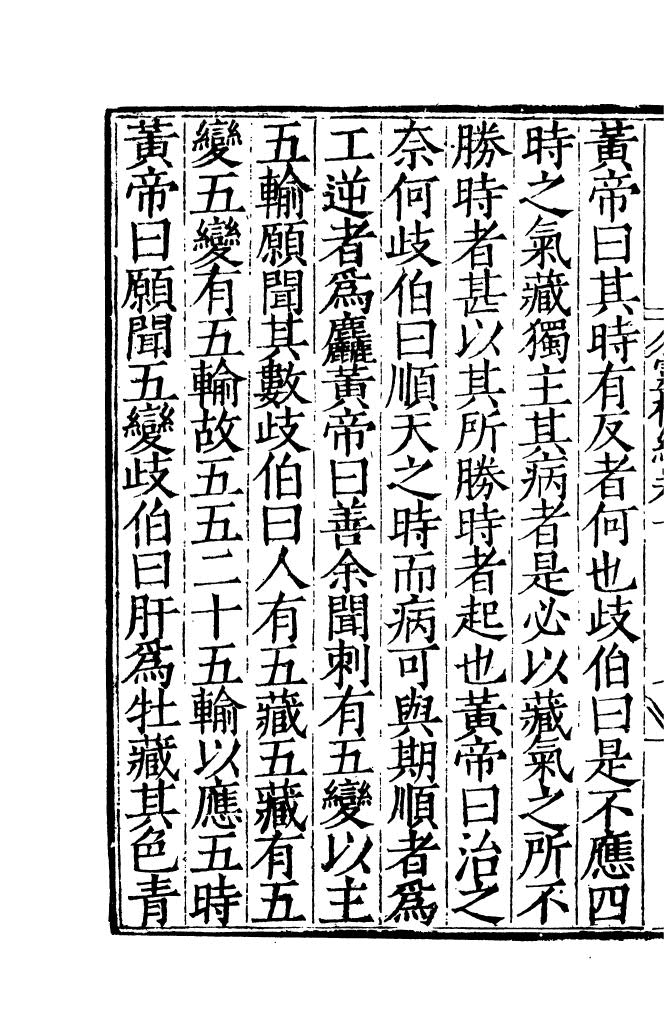 黃帝曰其時有反者何也歧伯曰是不應四
時之氣藏獨主其病者是必以藏氣之所不
勝時者甚以其所勝時者起也黃帝曰治之
奈何歧伯曰順天之時而病可與期順者爲
工逆者爲麤黃帝曰善余聞刺有五變以主
五輸願聞其數歧伯曰人有五藏五藏有五
變五變有五輸故五五二十五輸以應五時
黃帝曰願聞五變歧伯曰肝爲牡藏其色青